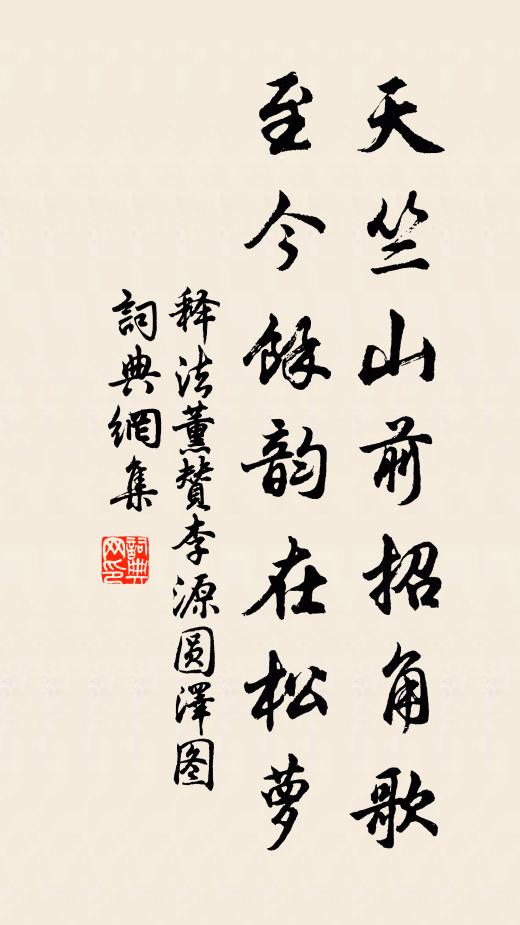 天竺山前招角歌
至今餘韵在松萝
释法薰赞李源圆澤图
詞典網集
詞典网印